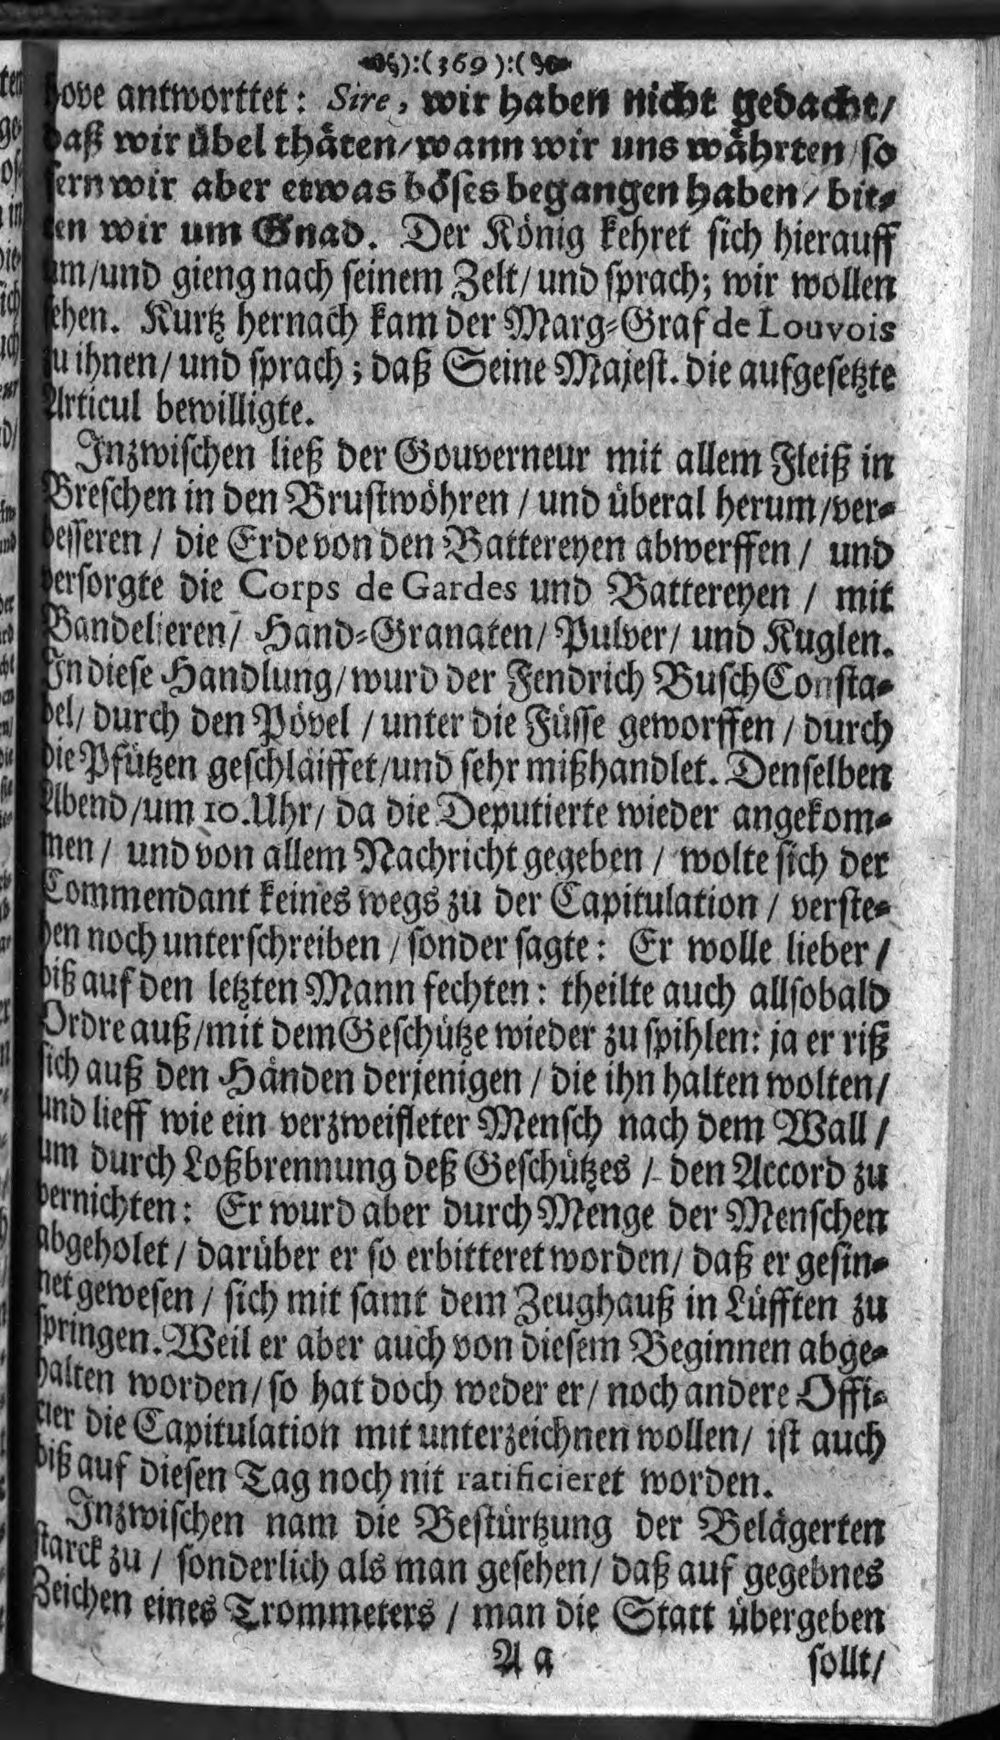 ):( 369 ):(
hove antworttet: Sire, wir haben nicht gedacht/
daß wir übel thäten/wann wir uns währten/so
fern wir aber etwas böses begangen haben/ bit-
ten wir um Gnad. Der König kehret sich hierauff
um/und gieng nach seinem Zelt/ und sprach; wir wollen
sehen. Kurtz hernach kam der Marg-Graf de Louvois
zu ihnen/ und sprach; daß Seine Majest. die aufgesetzte
Articul bewilligte.
Inzwischen ließ der Gouverneur mit allem Fleiß in
Breschen in den Brustwöhren / und überal herum/ver-
besseren / die Erde von den Battereyen abwerffen / und
versorgte die Corps de Gardes und Battereyen / mit
Bandelieren/ Hand-Granaten/ Pulver/ und Kuglen.
In diese Handlung/wurd der Fendrich Busch Consta-
bel/ durch den Pövel / unter die Füsse geworffen / durch
die Pfützen geschläiffet/und sehr mißhandlet. Denselben
Abend/um 10. Uhr/ da die Deputierte wieder angekom-
men / und von allem Nachricht gegeben / wolte sich der
Commendant keines wegs zu der Capitulation / verste-
hen noch unterschreiben / sonder sagte: Er wolle lieber /
biß auf den letzten Mann fechten: theilte auch allsobald
Ordre auß/mit dem Geschütze wieder zu spihlen: ja er riß
sich auß den Händen derjenigen / die ihn halten wolten/
und lieff wie ein verzweifleter Mensch nach dem Wall /
um durch Loßbrennung deß Geschützes / den Accord zu
vernichten: Er wurd aber durch Menge der Menschen
abgeholet / darüber er so erbitteret worden/ daß er gesin-
net gewesen / sich mit samt dem Zeughauß in Lüfften zu
springen. Weil er aber auch von diesem Beginnen abge-
halten worden/ so hat doch weder er/ noch andere Offi-
cier die Capitulation mit unterzeichnen wollen/ ist auch
biß auf diesen Tag noch nit ratificieret worden.
Inzwischen nam die Bestürtzung der Belägerten
starck zu / sonderlich als man gesehen/ daß auf gegebnes
Zeichen eines Trommeters / man die Statt übergeben
A a sollt/